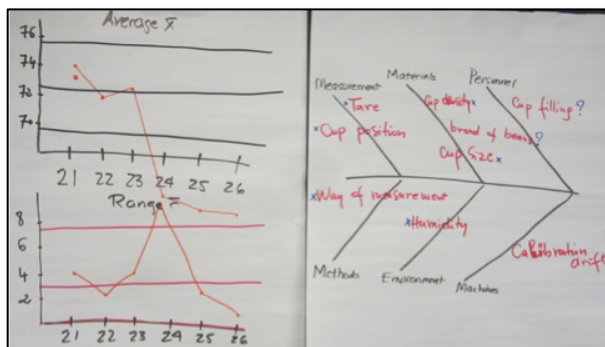 Average x̄
76
74
72
70
21 22 23 24 25 26
Range r̄
8
6
4
2
21 22 23 24 25 26
Measurement
Materials
Personnel
Tare
Cup position
Cup density
brand of beans?
Cup size
Cup filling?
Way of measurement
Humidity
Calibration drift
Methods
Environment
Machines